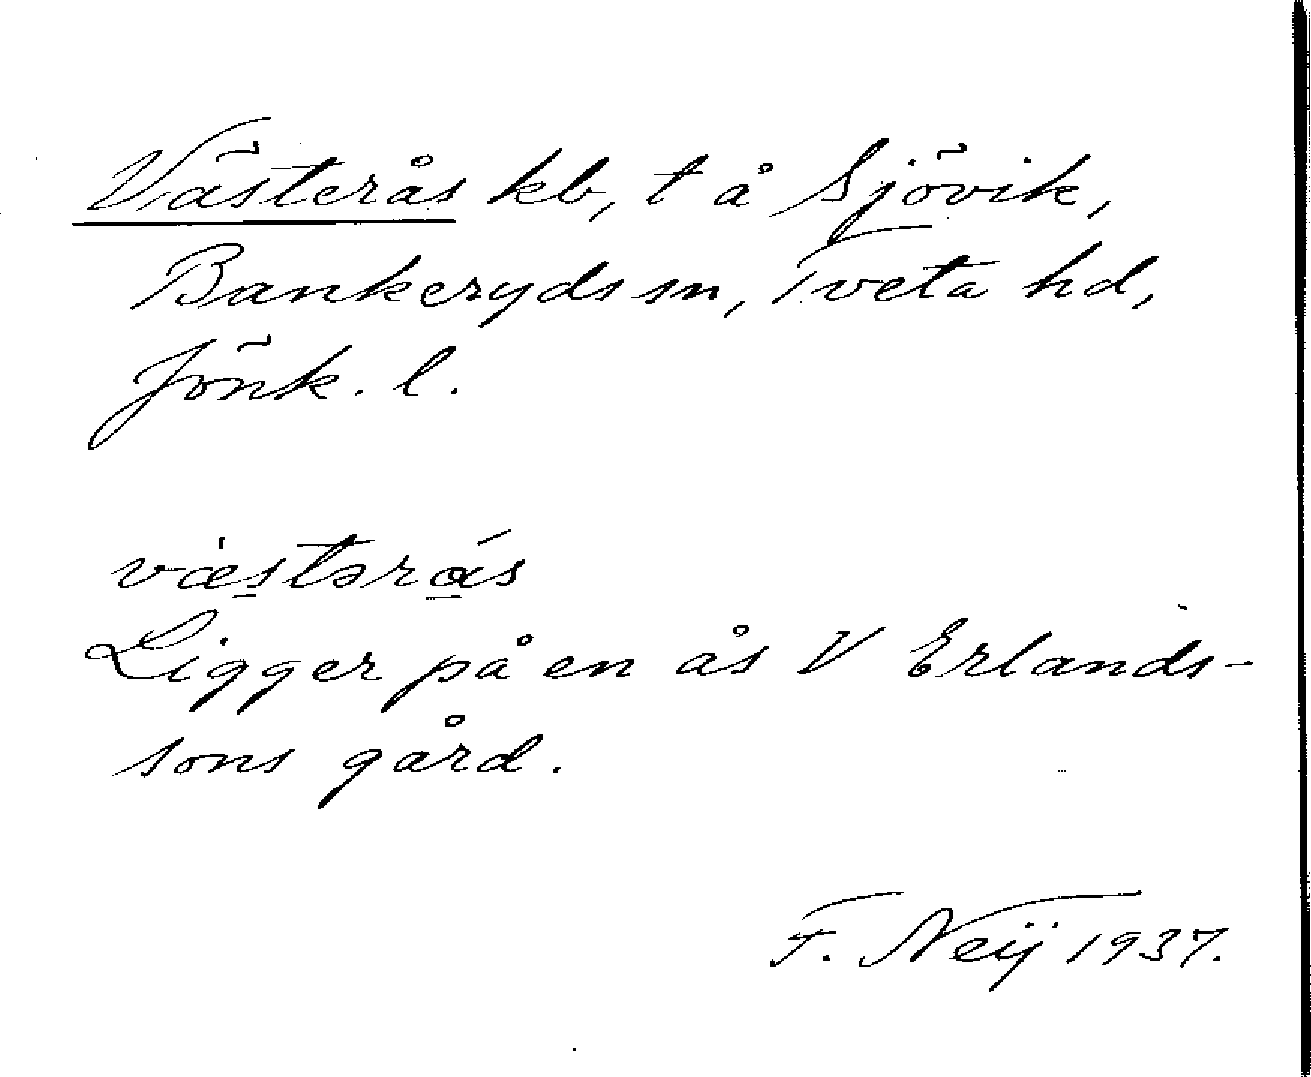 Västerås kb, t å Sjövik,
Bankeryds sn, Tveta hd,
Jönk. l.
væ̀stərås
Ligger på en ås V Erlands-
sons gård.
F. Neij 1937.